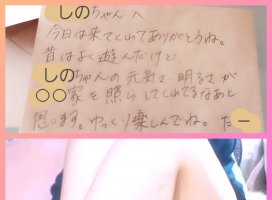 しのちゃんへ
今日は来てくれてありがとうね。
昔はよく遊んだけど
しのちゃんの元気さ、明るさが
○○家を照らしてくれてるなあと
思います。ゆっくり楽しんでね。たー